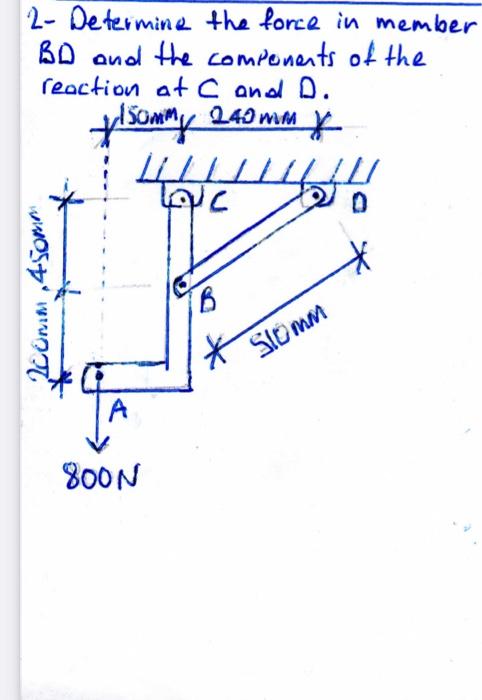 2- Determine the force in member
BD and the components of the
reaction at C and D.
150mm 240mm
C
D
200mm, 450mm
B
510mm
A
800N